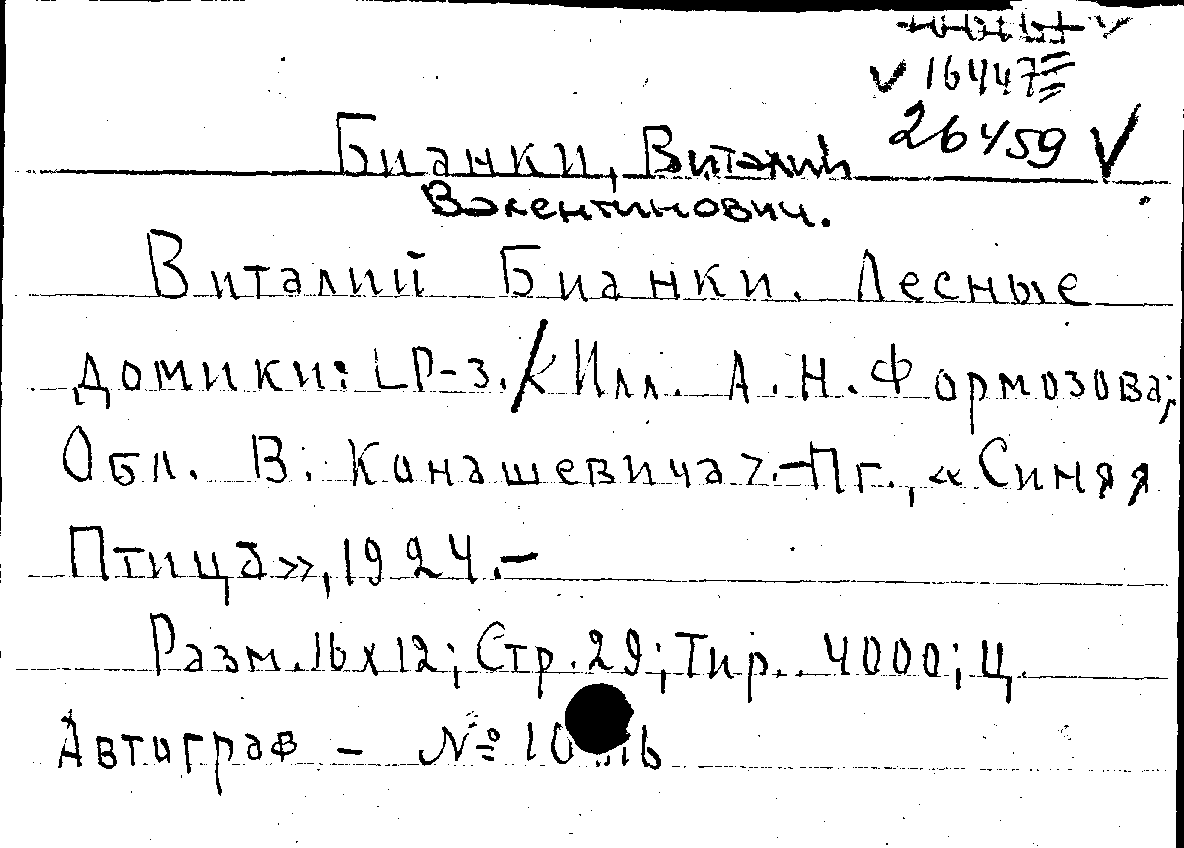 16447
26459
Бианки, Виталий
Валентинович.
Виталий Бианки. Лесные
домики: LР-з. / Илл. А. Н. Формозова;
Обл. В. Конашевича>.-Пг., «Синяя
Птица», 1924.-
Разм. 16x12; Стр. 29; Тир. 4000; Ц.
Автограф - №